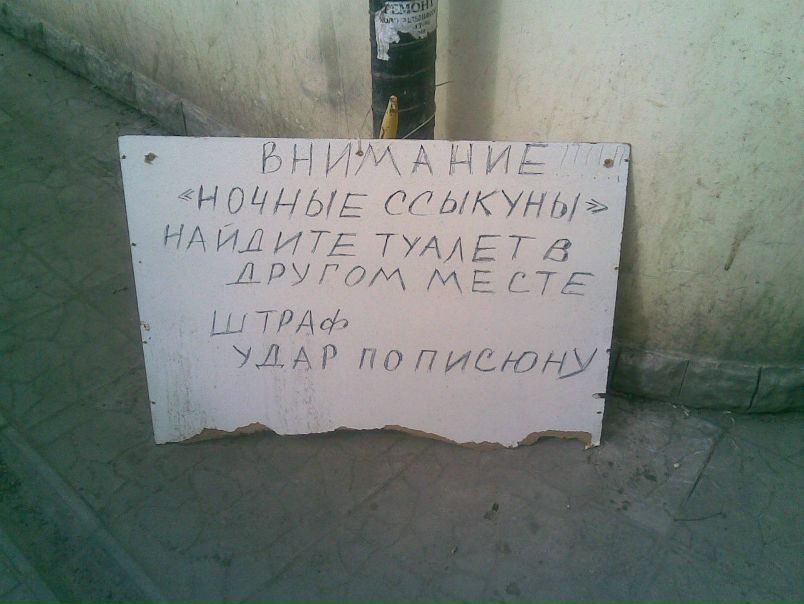 РЕМОНТ
ВНИМАНИЕ !!!!!!
«НОЧНЫЕ ССЫКУНЫ»
НАЙДИТЕ ТУАЛЕТ В
ДРУГОМ МЕСТЕ
ШТРАФ
УДАР ПО ПИСЮНУ